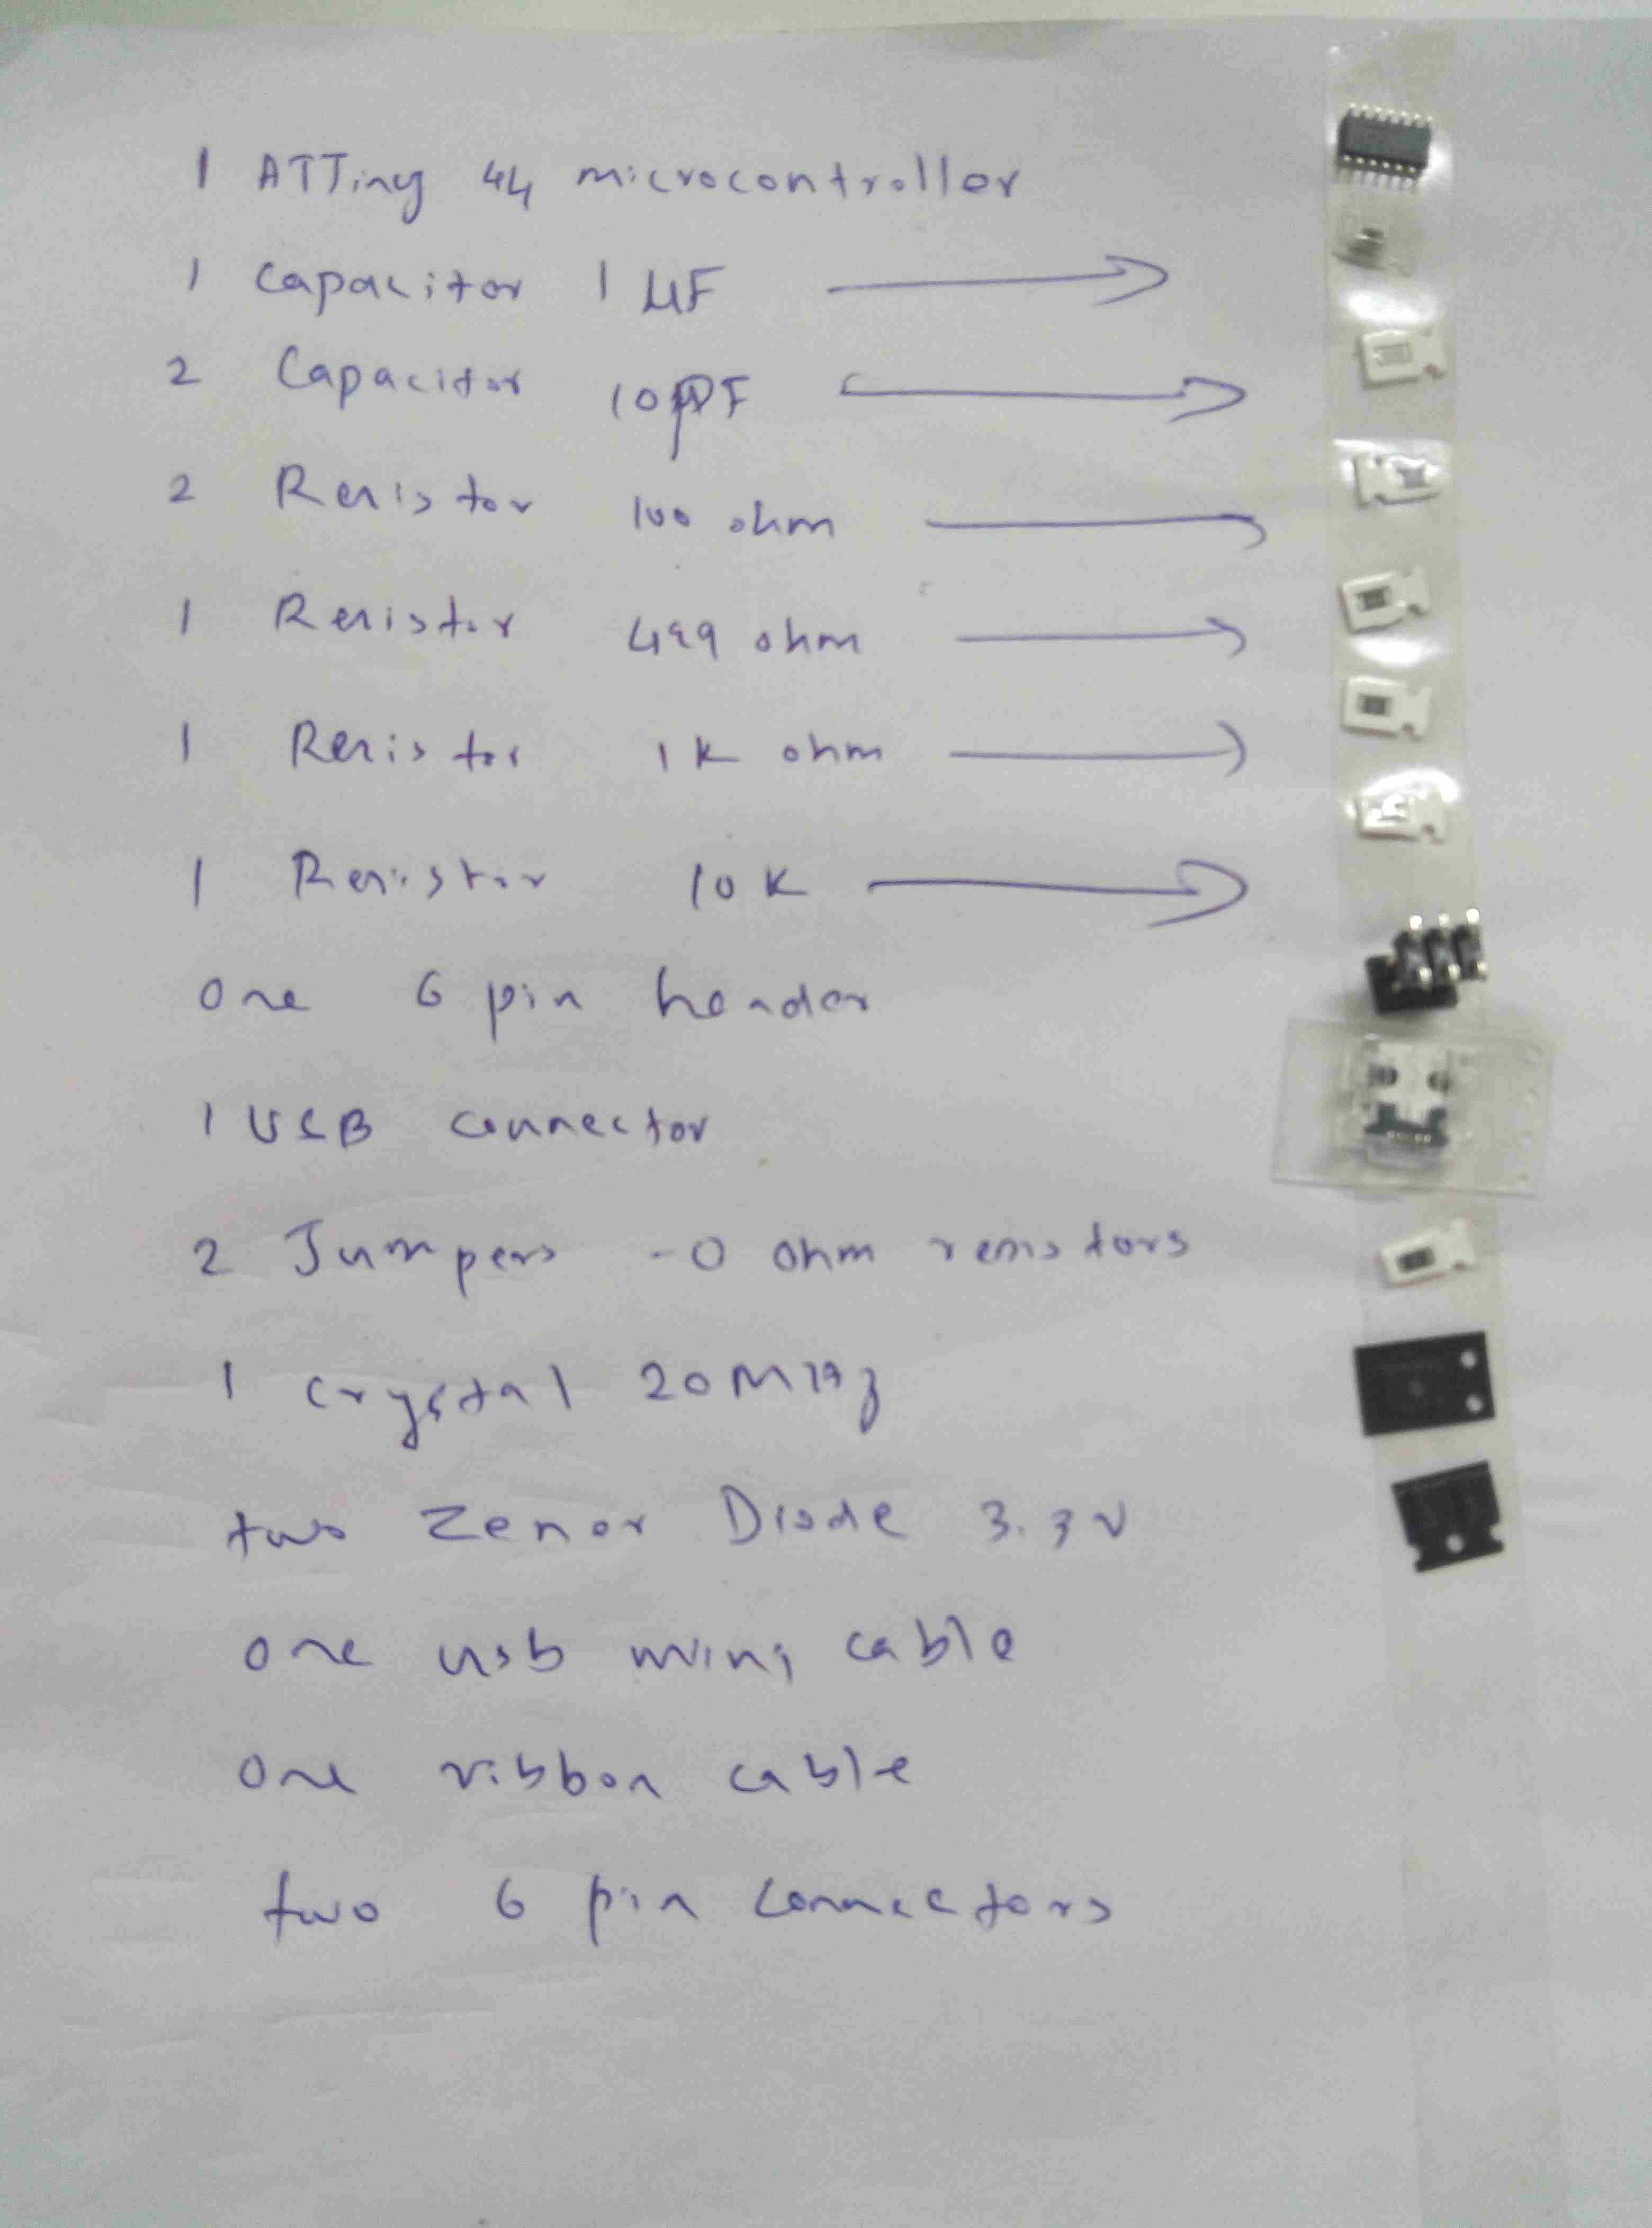 1 ATTiny 44 microcontroller
1 Capacitor 1 µF
2 Capacitor 10 pF
2 Resistor 100 ohm
1 Resistor 499 ohm
1 Resistor 1K ohm
1 Resistor 10K
one 6 pin header
1 USB connector
2 Jumpers - 0 ohm resistors
1 crystal 20 MHz
two Zener Diode 3.3 V
one usb mini cable
one ribbon cable
two 6 pin connectors